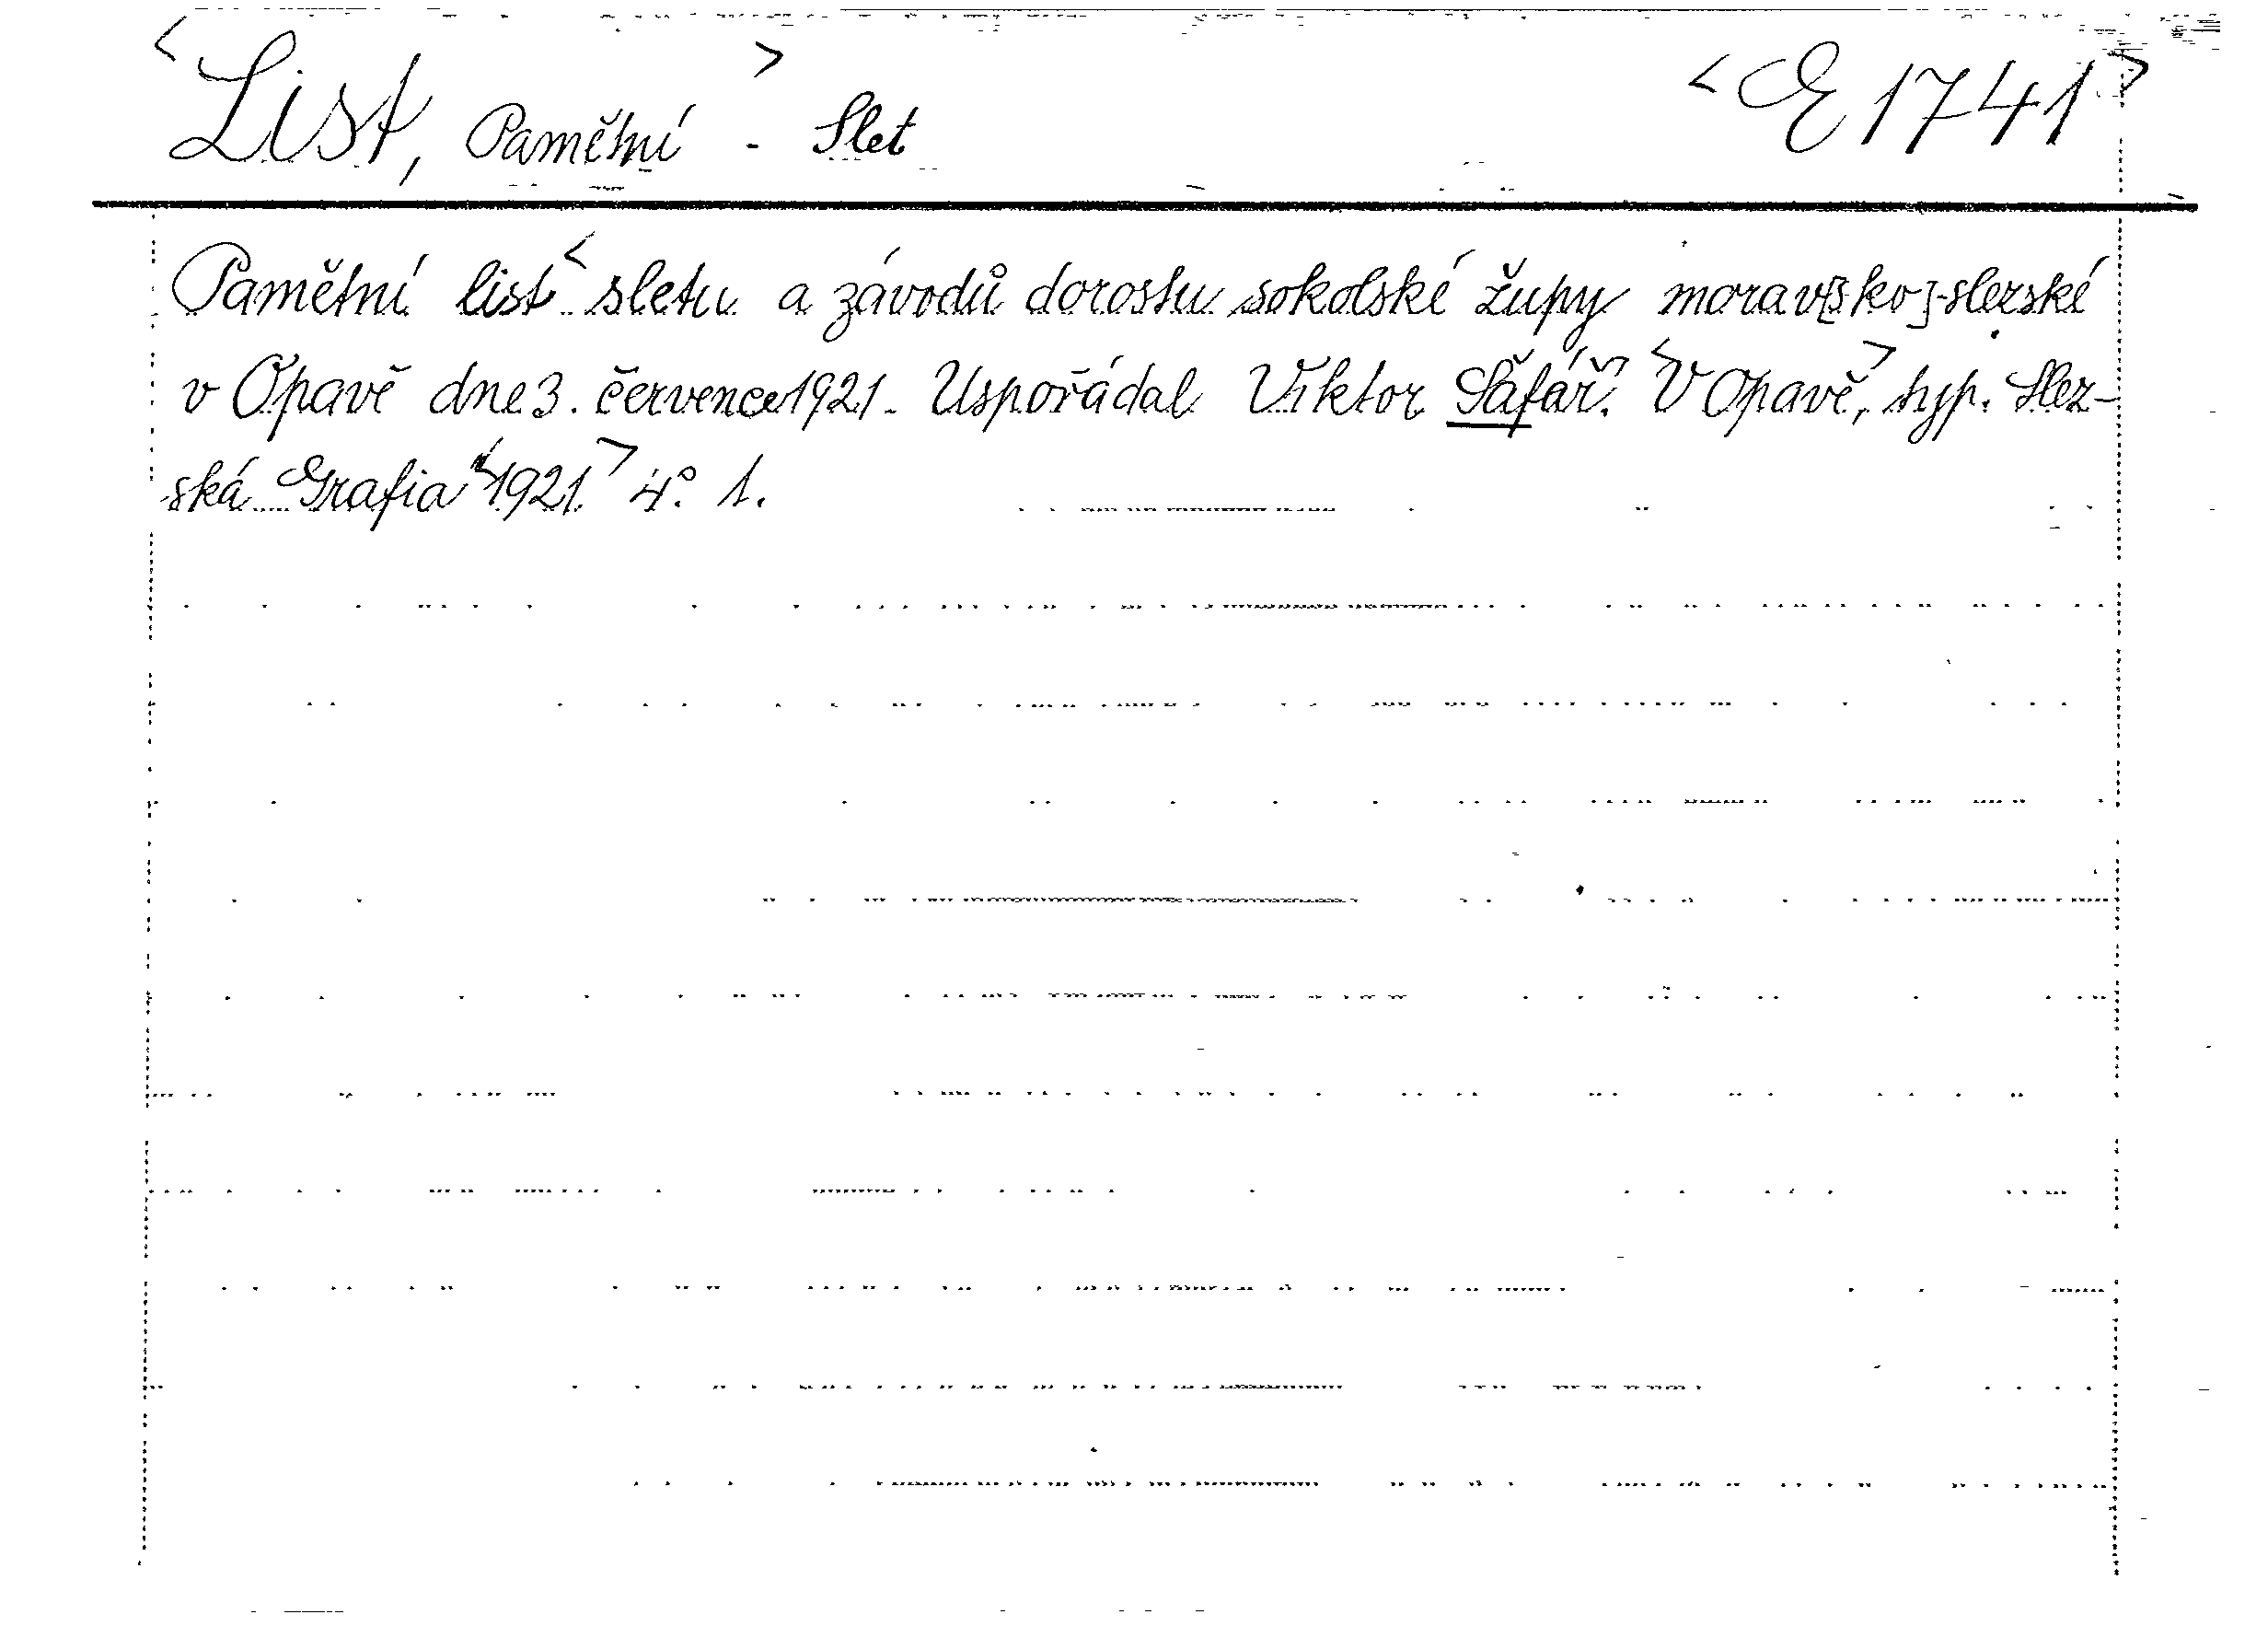 <List, Pamětní> - Slet <E 1741>
Pamětní list <sletu a závodů dorostu sokolské župy morav[sko]-slezské
v Opavě dne 3. července 1921. Uspořádal Viktor Šafář. <V Opavě,> typ. Slez-
ská Grafia <1921.> 4°. 1.